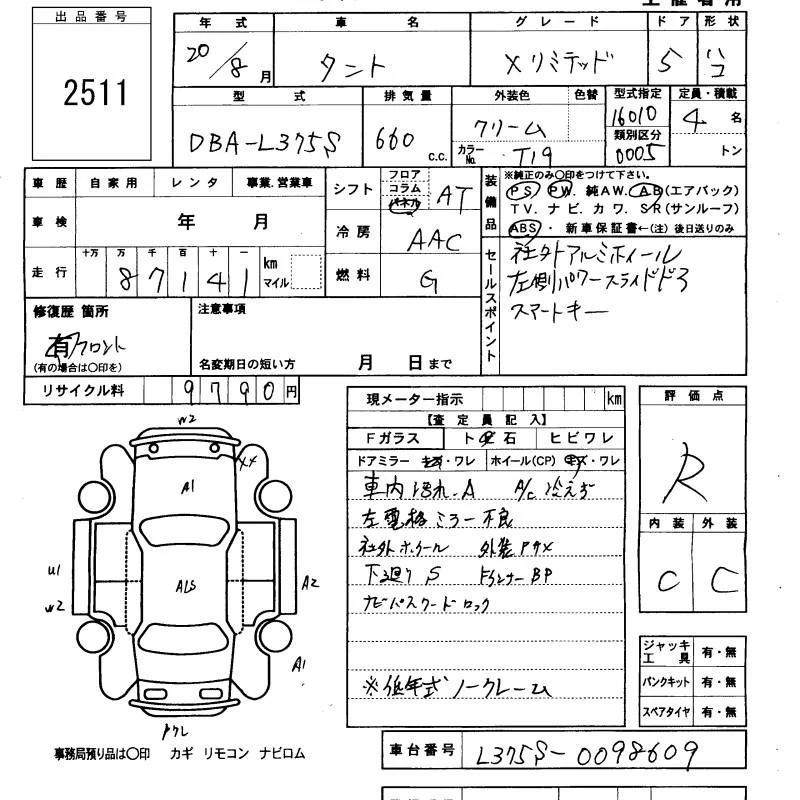 出品番号
2511
年 式 車 名 グレード ドア 形状
20/8月 タント Xリミテッド 5 ハコ
型 式 排気量 外装色 色替 型式指定 定員・積載
DBA-L375S 660 c.c. クリーム 16010 4 名
カラーNo. T19 類別区分 0005 トン
車歴 自家用 レンタ 事業.営業車
シフト フロア コラム パネル AT
装備品 ※純正のみ○印をつけて下さい。
PS. PW. 純AW. AB(エアバック)
TV. ナビ. カワ. SR(サンルーフ)
ABS・ 新車保証書←(注)後日送りのみ
車検 年 月
冷房 AAC
走行 十万 万 千 百 十 一
87141 km マイル
燃料 G
セールスポイント
社外アルミホイール
左側パワースライドドア
スマートキー
修復歴 箇所
有 フロント
(有の場合は○印を)
注意事項
名変期日の短い方 月 日まで
リサイクル料 9790円
現メーター指示 km
【査定員記入】
Fガラス ト 石 ヒビワレ
ドアミラー キズ・ワレ ホイール(CP) キズ・ワレ
車内汚れ.A A/C冷えず
左電格ミラー不良
社外ホイール 外装PキX
下廻りS FインナーBP
ナビパスワードロック
※低年式ノークレーム
評価点
R
内装 外装
C C
W2
XX
A1
ALS
U1
W2
A2
A1
ワレ
ジャッキ工具 有・無
パンクキット 有・無
スペアタイヤ 有・無
事務局預り品は○印 カギ リモコン ナビロム
車台番号 L375S-0098609